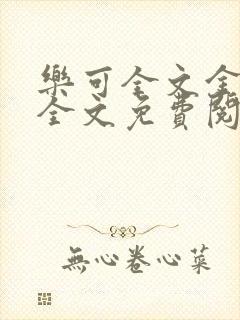 樂可全文全
全文免費閱
無心卷心菜